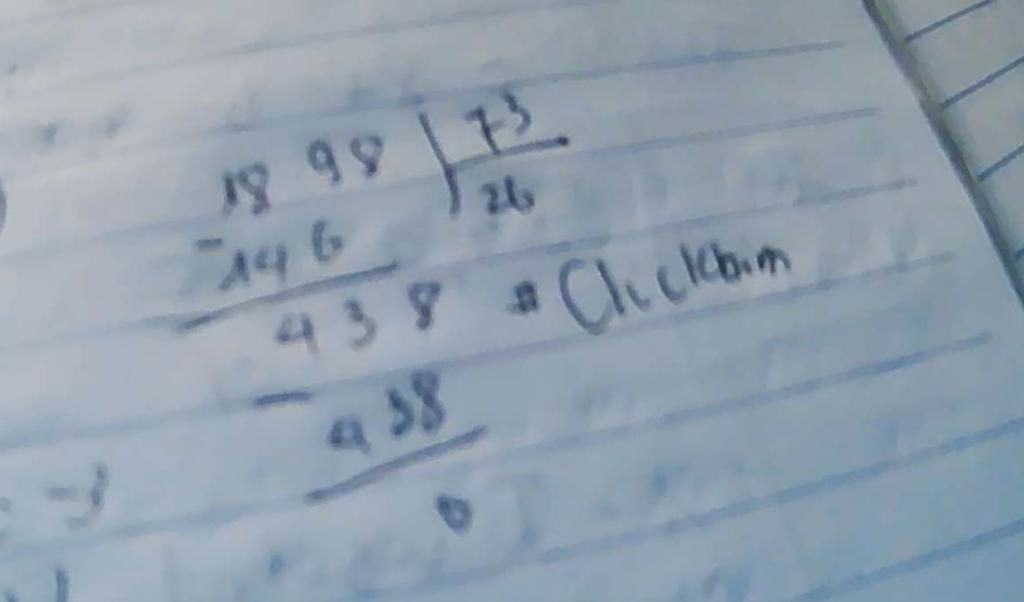 1898 73
-146 26
438
-438
0